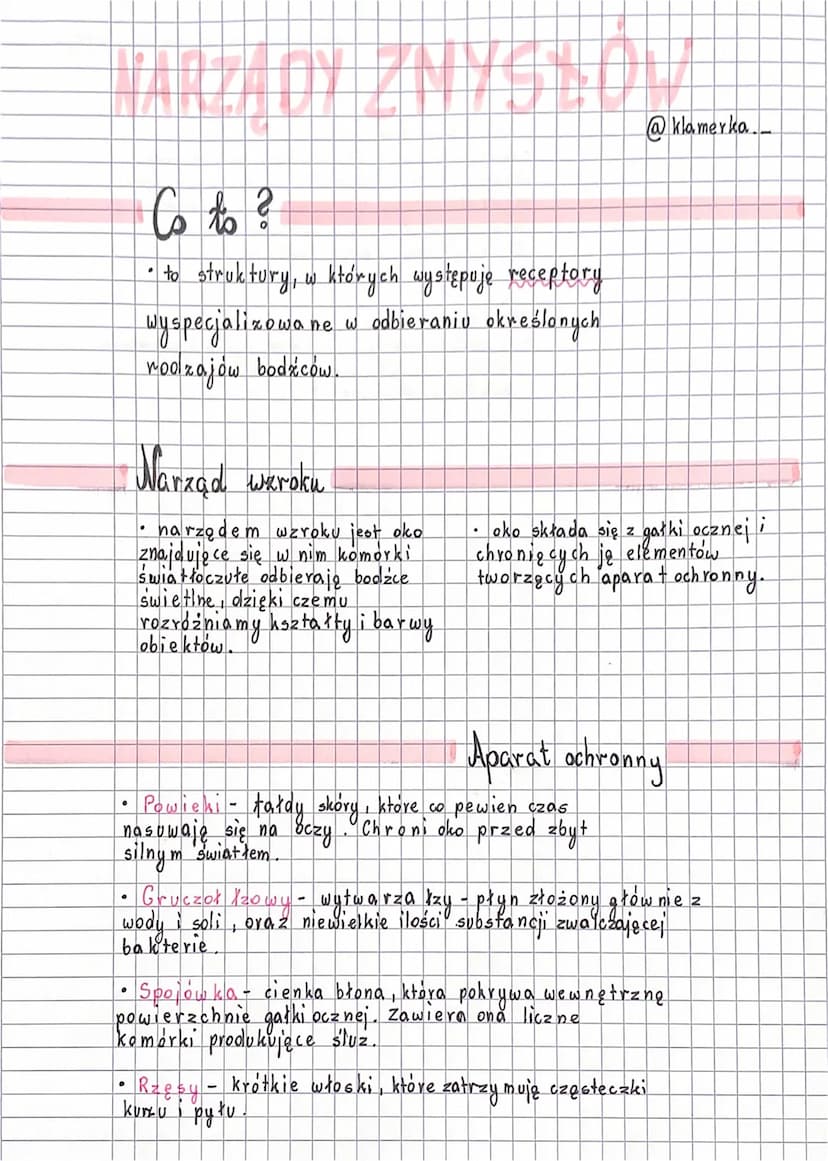 NARZĄDY ZMYSŁÓW
@klamerka._
Co to?
• to struktury, w których występuję receptory
wyspecjalizowane w odbieraniu określonych
rodzajów bodźców.
Narząd wzroku
• narzędem wzroku jest oko
znajdujęce się w nim komórki
światłoczułe odbieraję bodźce
świetlne, dzięki czemu
rozróżniamy kształty i barwy
obiektów.
• oko składa się z gałki ocznej i
chronięcych ję elementów
tworzęcych aparat ochronny.
Aparat ochronny
• Powieki - fałdy skóry, które co pewien czas
nasuwaję się na oczy. Chroni oko przed zbyt
silnym światłem.
• Gruczoł łzowy - wytwarza łzy - płyn złożony głównie z
wody i soli, oraz niewielkie ilości substancji zwalczajęcej
bakterie.
• Spojówka - cienka błona, która pokrywa wewnętrznę
powierzchnie gałki ocznej. Zawiera ona liczne
komórki produkujęce śluz.
• Rzęsy - krótkie włoski, które zatrzymuję częsteczki
kurzu i pyłu.